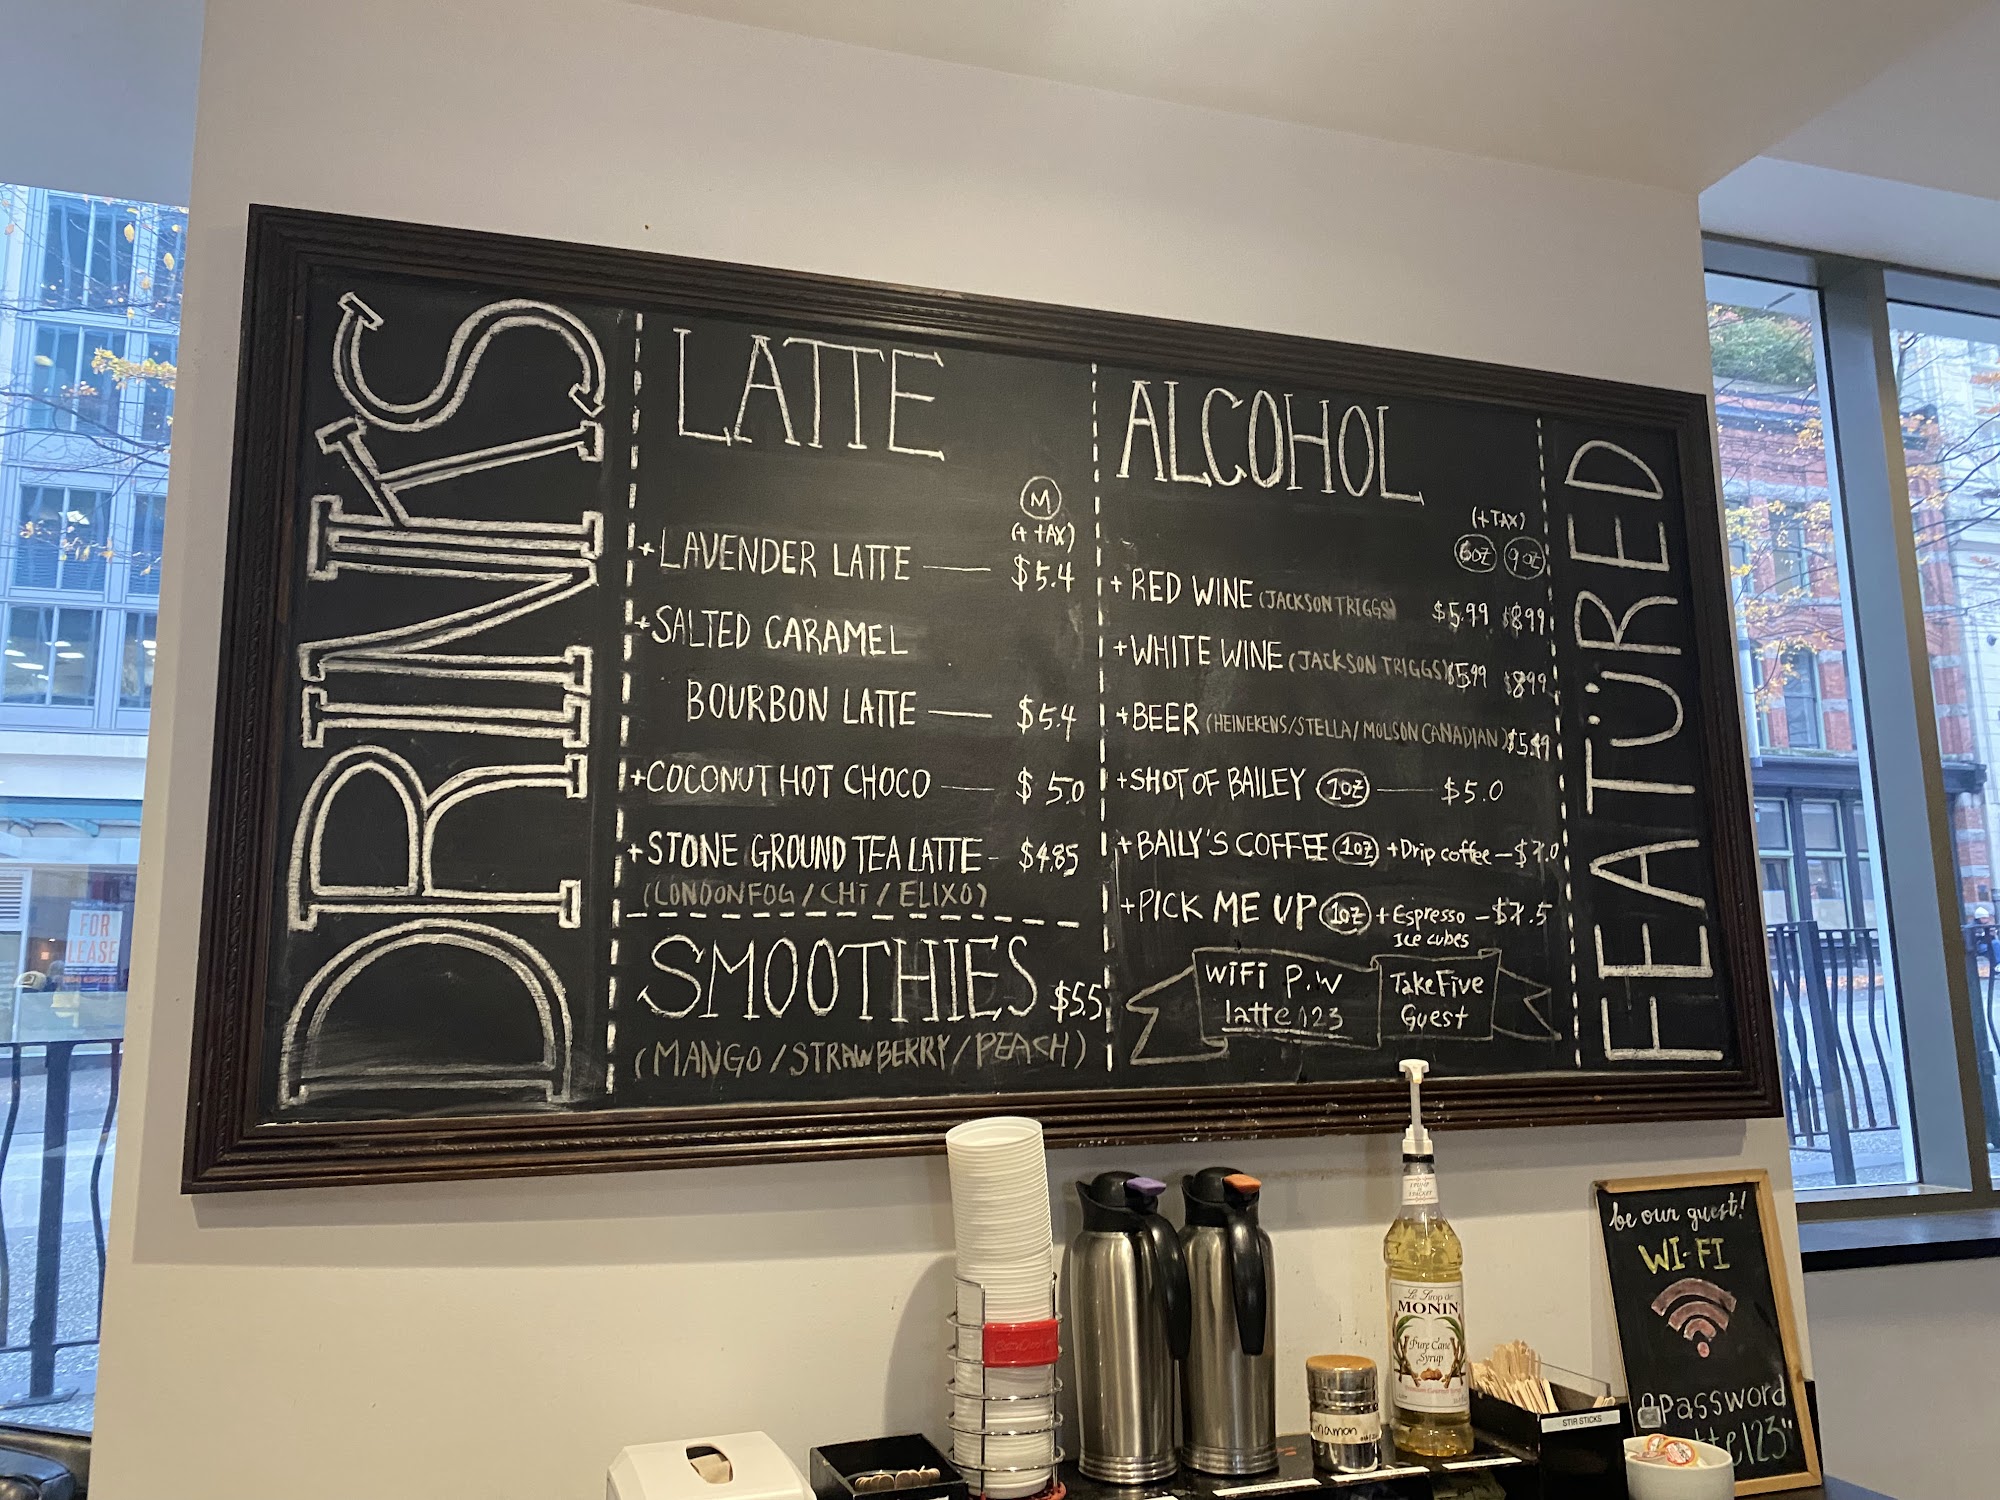 DRINKS
LATTE
M
(+ TAX)
+ LAVENDER LATTE — $5.4
+ SALTED CARAMEL
BOURBON LATTE — $5.4
+ COCONUT HOT CHOCO — $5.0
+ STONE GROUND TEA LATTE - $4.85
(LONDONFOG / CHI / ELIXO)
SMOOTHIES $5.5
(MANGO / STRAWBERRY / PEACH)
ALCOHOL
(+TAX)
6oz 9oz
+ RED WINE (JACKSON TRIGGS) $5.99 $8.99
+ WHITE WINE (JACKSON TRIGGS) $5.99 $8.99
+ BEER (HEINEKENS/STELLA/MOLSON CANADIAN) $5.49
+ SHOT OF BAILEY 1oz — $5.0
+ BAILY'S COFFEE 1oz + Drip coffee — $7.0
+ PICK ME UP 1oz + Espresso — $7.5
Ice cubes
WiFi P.W
latte123
Take Five
Guest
FEATÜRED
FOR
LEASE
be our guest!
WI-FI
Password
123"
Le Sirop de
MONIN
Pure Cane
Syrup
STIR STICKS